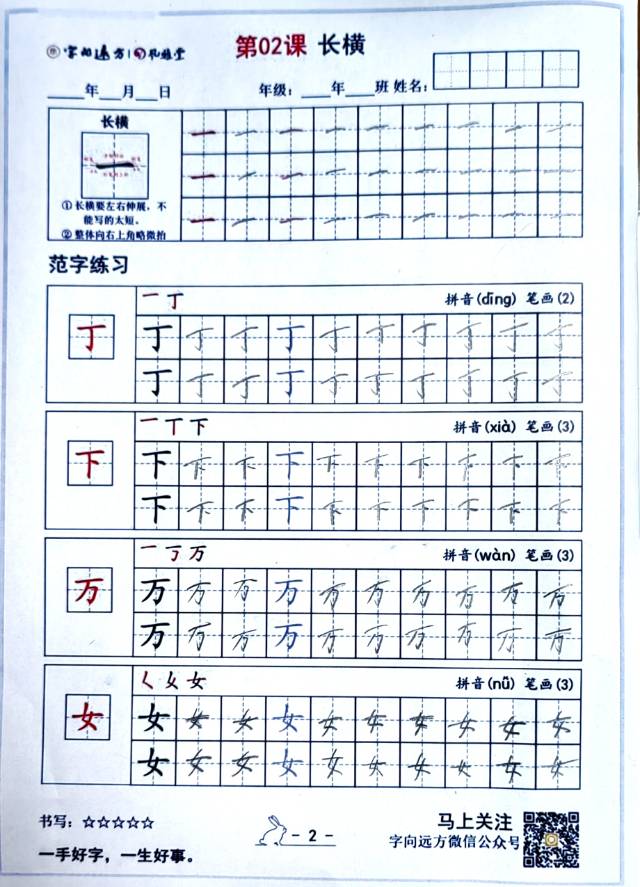 字向远方 孔雄堂
第02课 长横
____年___月___日 年级：____年____班 姓名：
长横
①长横要左右伸展，不
能写的太短。
②整体向右上角略微抬
一 一 一 一 一 一 一 一 一
一 一 一 一 一 一 一 一 一
一 一 一 一 一 一 一 一 一
范字练习
一 丁 拼音(dīng) 笔画(2)
丁
丁 丁 丁 丁 丁 丁 丁 丁 丁 丁
丁 丁 丁 丁 丁 丁 丁 丁 丁 丁
一 丅 下 拼音(xià) 笔画(3)
下
下 下 下 下 下 下 下 下 下 下
下 下 下 下 下 下 下 下 下 下
一 丂 万 拼音(wàn) 笔画(3)
万
万 万 万 万 万 万 万 万 万 万
万 万 万 万 万 万 万 万 万 万
く 女 女 拼音(nǚ) 笔画(3)
女
女 女 女 女 女 女 女 女 女 女
女 女 女 女 女 女 女 女 女 女
书写：☆☆☆☆☆
- 2 -
马上关注
字向远方微信公众号
一手好字，一生好事。